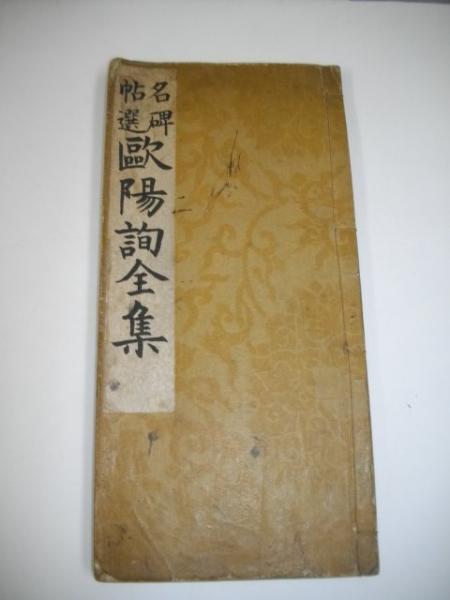 名碑
帖選
歐陽詢全集
二